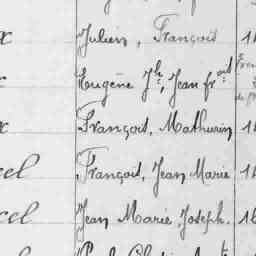 x Julien, François 1
x Eugène Jh, Jean frois
x François, Mathurin 1
cel François, Jean Marie 1
cel Jean Marie, Joseph. 18